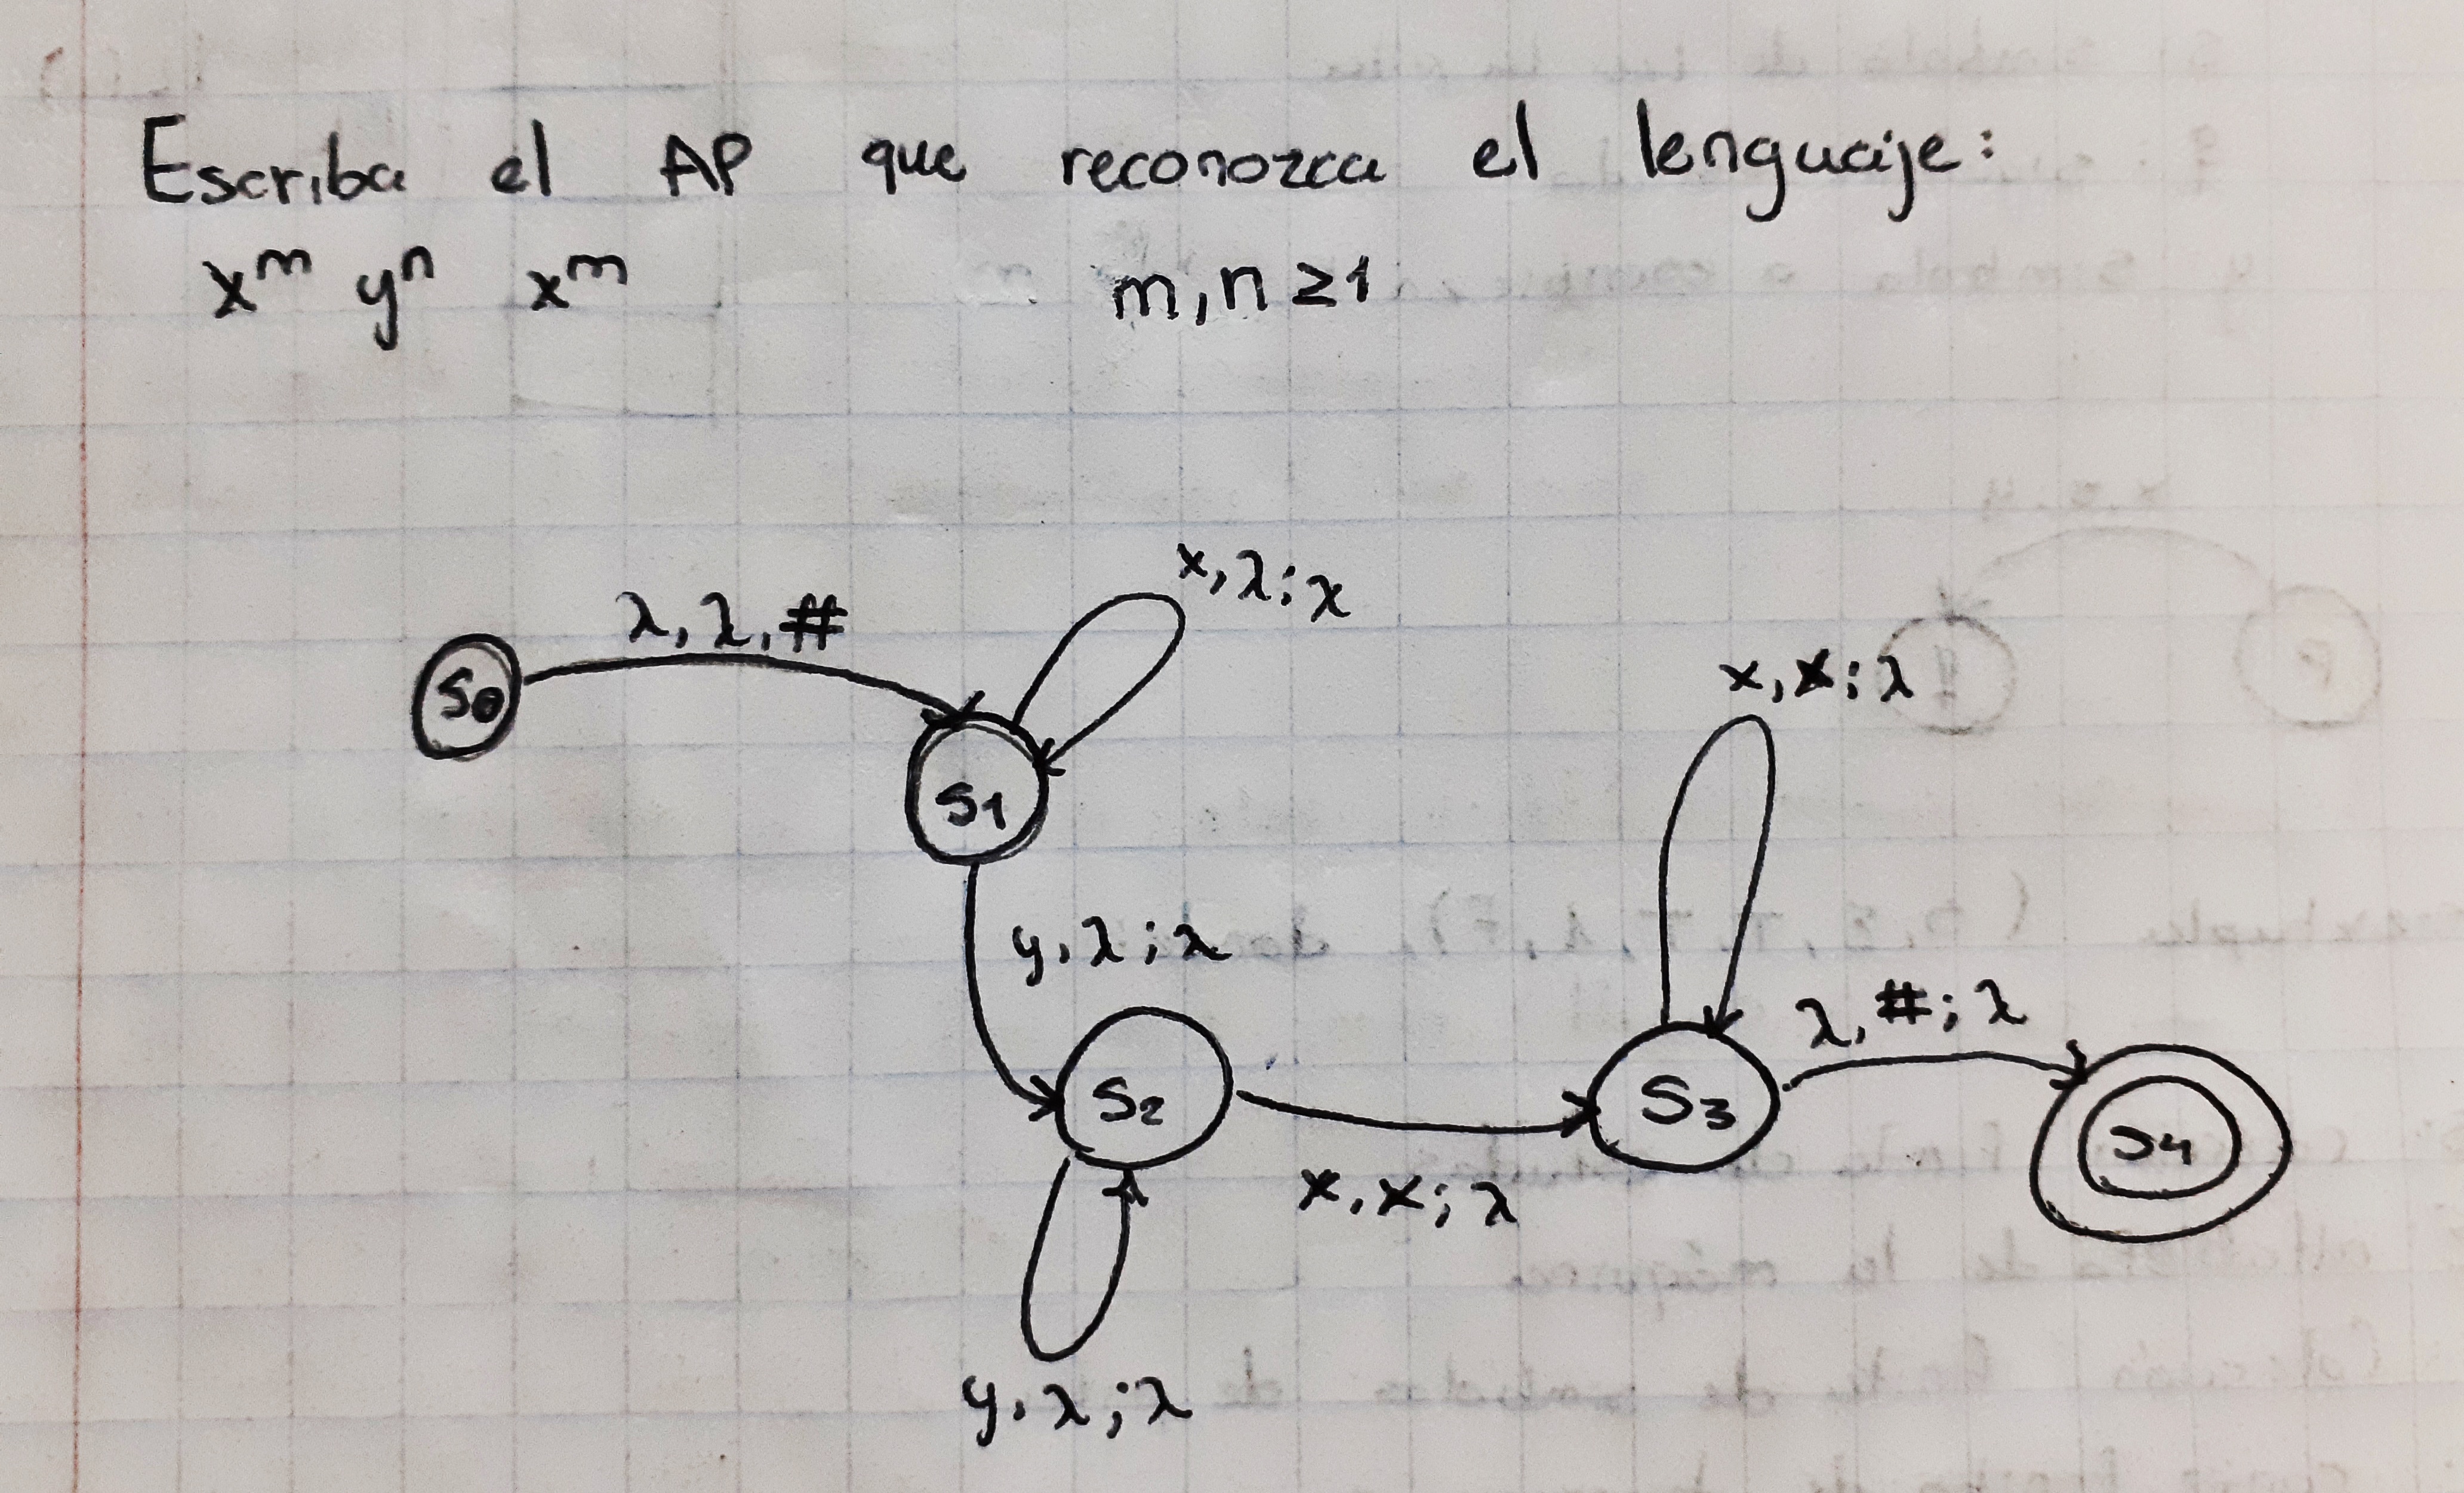 Escriba el AP que reconozca el lenguaje:
xᵐ yⁿ xᵐ m,n ≥1
λ,λ,#
x,λ;x
S0
S1
x,x;λ
y,λ;λ
λ,#;λ
S2
S3
S4
x,x;λ
y,λ;λ